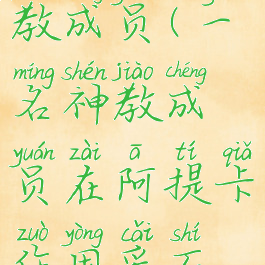 教成员(一
míng shén jiào chéng
名神教成
yuán zài ā tí qiǎ
员在阿提卡
zuò yòng cǎi shí
作用采石